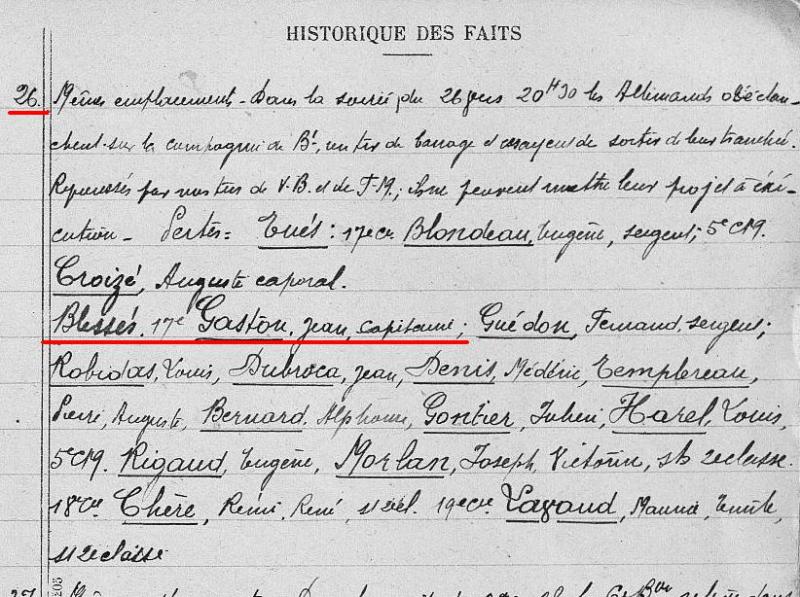 HISTORIQUE DES FAITS
26. Même emplacement - Dans la soirée du 26 vers 20H30 les Allemands déclan-
chent sur la compagnie de Bt, un tir de barrage et essayent de sortir de leur tranchée.
Repoussés par nos tirs de V.B. et de F-M.; ils ne peuvent mettre leur projet à éxé-
cution - Pertes = Tués : 17e Cie Blondeau, Eugène, sergent; 5e CM.
Croizé, Auguste caporal.
Blessés. 17e Gaston, Jean, capitaine; Guédon, Fernand, sergent;
Robidas, Louis, Dubroca, Jean, Denis, Médéric, Templereau,
Pierre, Auguste, Bernard, Alphonse, Gontier, Julien, Harel, Louis,
5e CM. Rigaud, Eugène, Morlan, Joseph, Victorin, st 2e classe.
18e Cie Chère, Rémi, René, st 2e cl. 19e Cie Lavaud, Maurice, Emile,
st 2e classe
27.